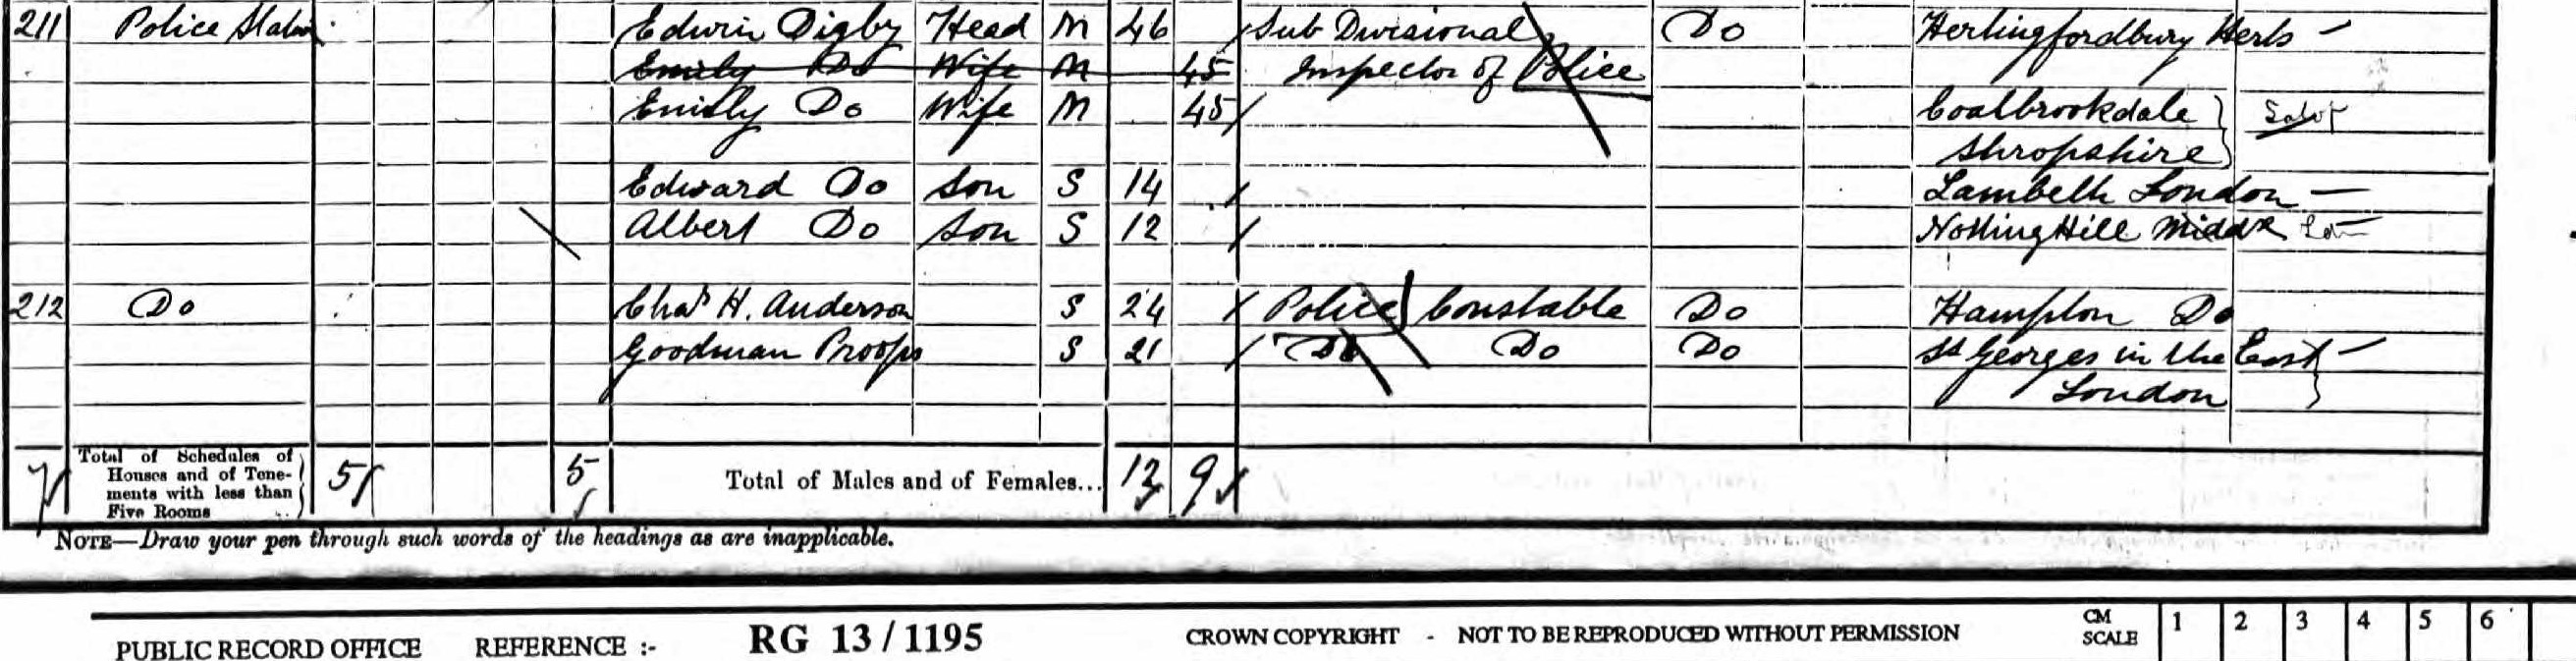 211 Police Station Edwin Digby Head M 46 Sub Divisional Do Hertingfordbury Herts —
Emily Do Wife M 45 Inspector of Police
Emily Do Wife M 45 Coalbrookdale } Salop
Shropshire
Edward Do Son S 14 Lambeth London —
Albert Do Son S 12 Notting Hill Middx
212 Do Chas H. Anderson S 24 Police Constable Do Hampton Do
Goodman Proops S 21 Do Do Do St Georges in the East —
London }
7 Total of Schedules of Houses and of Tene- ments with less than Five Rooms .. } 5 5 Total of Males and of Females... 12 9
NOTE—Draw your pen through such words of the headings as are inapplicable.
PUBLIC RECORD OFFICE REFERENCE :- RG 13 / 1195 CROWN COPYRIGHT - NOT TO BE REPRODUCED WITHOUT PERMISSION CM SCALE 1 2 3 4 5 6